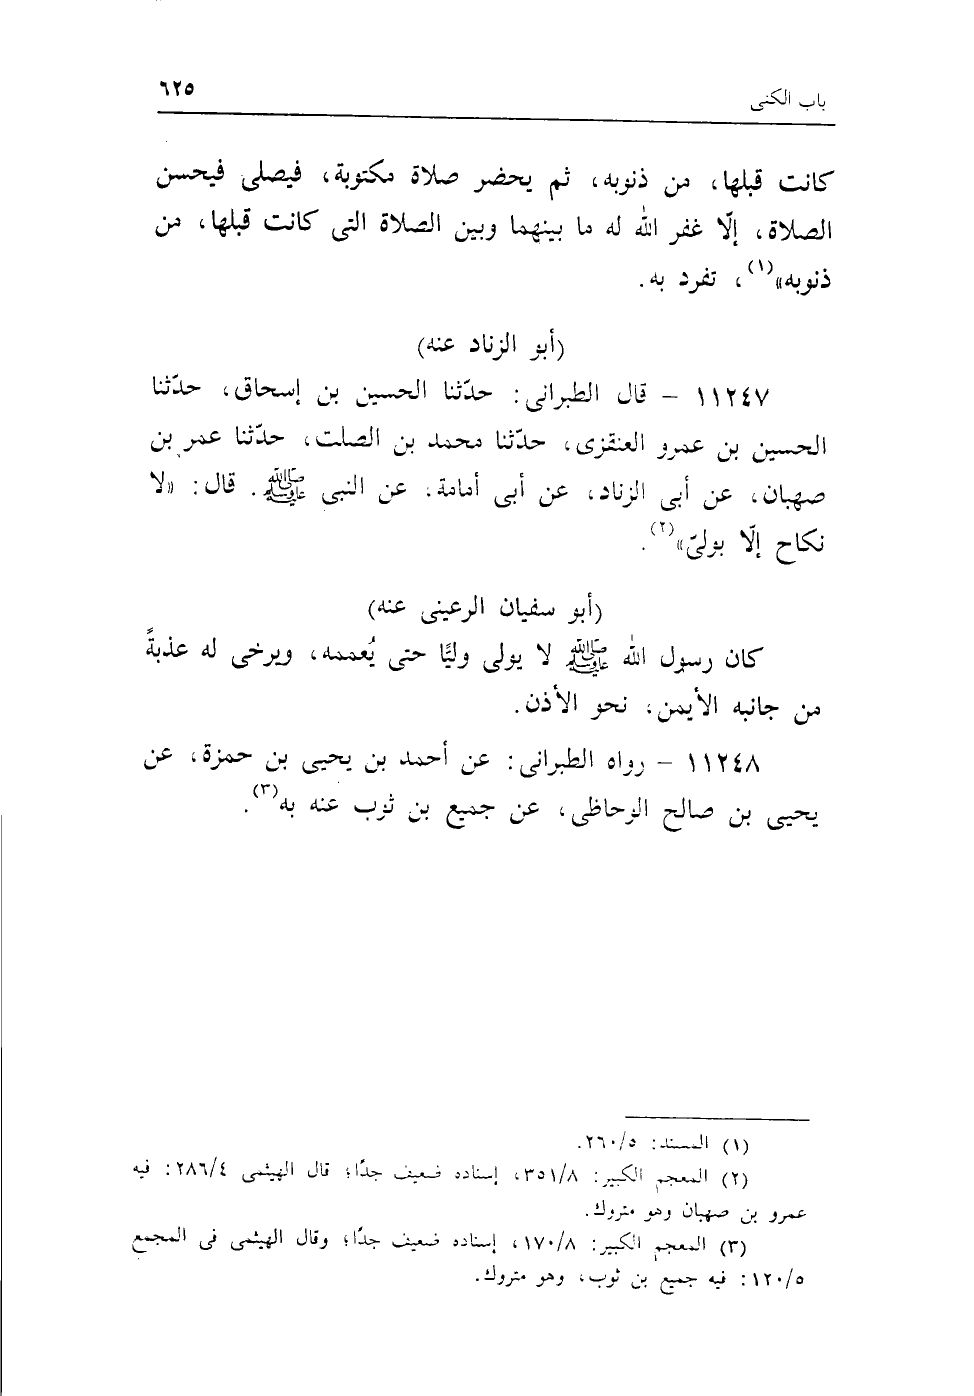 باب الكنى
٦٢٥
كانت قبلها، من ذنوبه، ثم يحضر صلاة مكتوبة، فيصلى فيحسن
الصلاة، إلّا غفر الله له ما بينهما وبين الصلاة التى كانت قبلها، من
ذنوبه»(١)، تفرد به.
(أبو الزناد عنه)
١١٢٤٧ – قال الطبرانى: حدّثنا الحسين بن إسحاق، حدّثنا
الحسين بن عمرو العنقزى، حدّثنا محمد بن الصلت، حدّثنا عمر بن
صهبان، عن أبى الزناد، عن أبى أمامة، عن النبى ﷺ. قال: «لا
نكاح إلّا بولىّ»(٢).
(أبو سفيان الرعينى عنه)
كان رسول الله ﷺ لا يولى وليًا حتى يُعممه، ويرخى له عذبةً
من جانبه الأيمن، نحو الأذن.
١١٢٤٨ – رواه الطبرانى: عن أحمد بن يحيى بن حمزة، عن
يحيى بن صالح الوحاظى، عن جميع بن ثوب عنه به(٣).
(١) المسند: ٢٦٠/٥.
(٢) المعجم الكبير: ٣٥١/٨، إسناده ضعيف جدًا؛ قال الهيثمى ٢٨٦/٤: فيه
عمرو بن صهبان وهو متروك.
(٣) المعجم الكبير: ١٧٠/٨، إسناده ضعيف جدًا؛ وقال الهيثمى فى المجمع
١٢٠/٥: فيه جميع بن ثوب، وهو متروك.